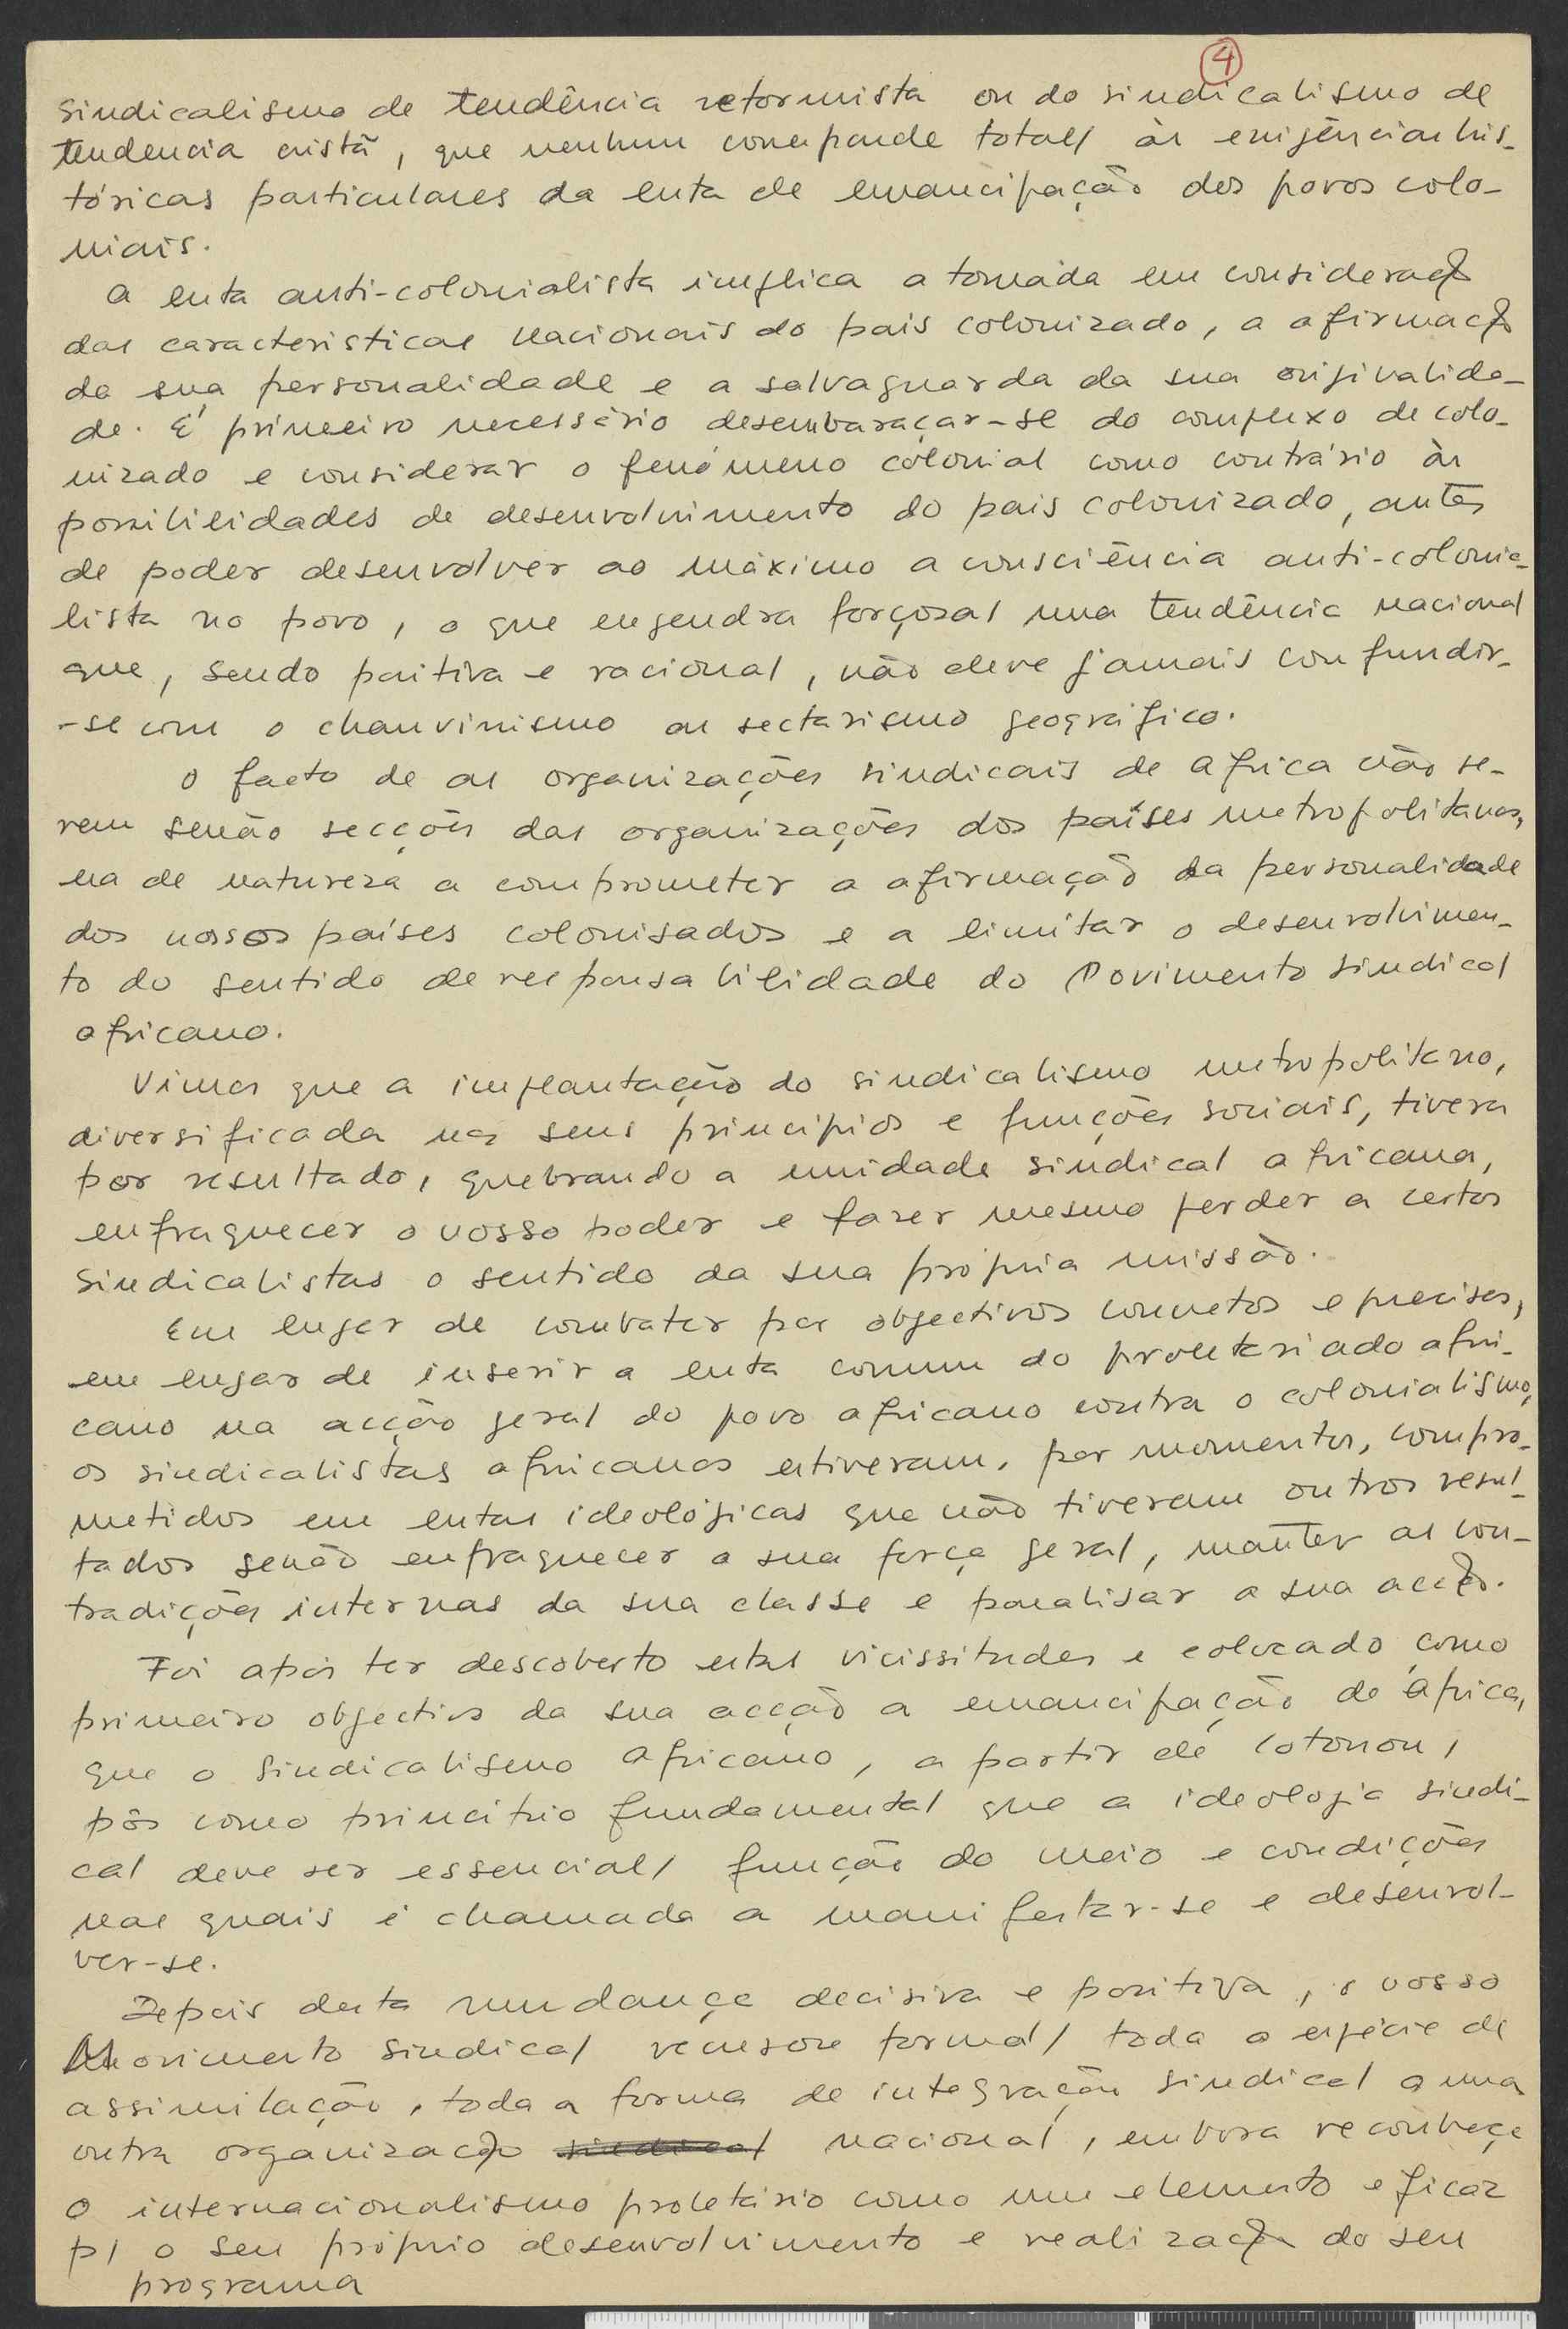 4
sindicalismo de tendência reformista ou do sindicalismo de
tendencia cristã, que nenhum corresponde total/ às exigências his-
tóricas particulares da luta de emancipação dos povos colo-
niais.
A luta anti-colonialista implica a tomada em consideraçº
das caracteristicas nacionais do pais colonizado, a afirmaçº
da sua personalidade e a salvaguarda da sua originalida-
de. É primeiro necessário desembaraçar-se do complexo de colo-
nizado e considerar o fenómeno colonial como contrário às
possibilidades de desenvolvimento do pais colonizado, antes
de poder desenvolver ao máximo a consciência anti-colonia-
lista no povo, o que engendra forçosa/ uma tendência nacional
que, sendo positiva e racional, não deve jamais confundir-
-se com o chauvinismo ou sectarismo geográfico.
O facto de as organizações sindicais de Africa não se-
rem senão secções das organizações dos países metropolitanos,
era de natureza a comprometer a afirmação da personalidade
dos nossos países colonisados e a limitar o desenvolvimen-
to do sentido de responsabilidade do Movimento sindical
africano.
Vimos que a implantação do sindicalismo metropolitano,
diversificada nos seus princípios e funções sociais, tivera
por resultado, quebrando a unidade sindical africana,
enfraquecer o vosso poder e fazer mesmo perder a certos
sindicalistas o sentido da sua própria missão.
Em lugar de combater por objectivos concretos e precisos,
em lugar de inserir a luta comum do proletariado afri-
cano na acção geral do povo africano contra o colonialismo,
os sindicalistas africanos estiveram, por momentos, compro-
metidos em lutas ideológicas que não tiveram outros resul-
tados senão enfraquecer a sua força geral, manter as con-
tradições internas da sua classe e paralisar a sua acçº.
Foi após ter descoberto estas vicissitudes e colocado como
primeiro objectivo da sua acção a emancipação de África,
que o sindicalismo africano, a partir de Cotonou,
pôs como princípio fundamental que a ideologia sindi-
cal deve ser essencial/ função do meio e condições
nas quais é chamada a manifestar-se e desenvol-
ver-se.
Depois desta mudança decisiva e positiva, o vosso
Movimento sindical recusou formal/ toda a espécie de
assimilação, toda a forma de integração sindical a uma
outra organizaçº sindical nacional, embora reconheça
o internacionalismo proletário como um elemento eficaz
p/ o seu próprio desenvolvimento e realizaçº do seu
programa